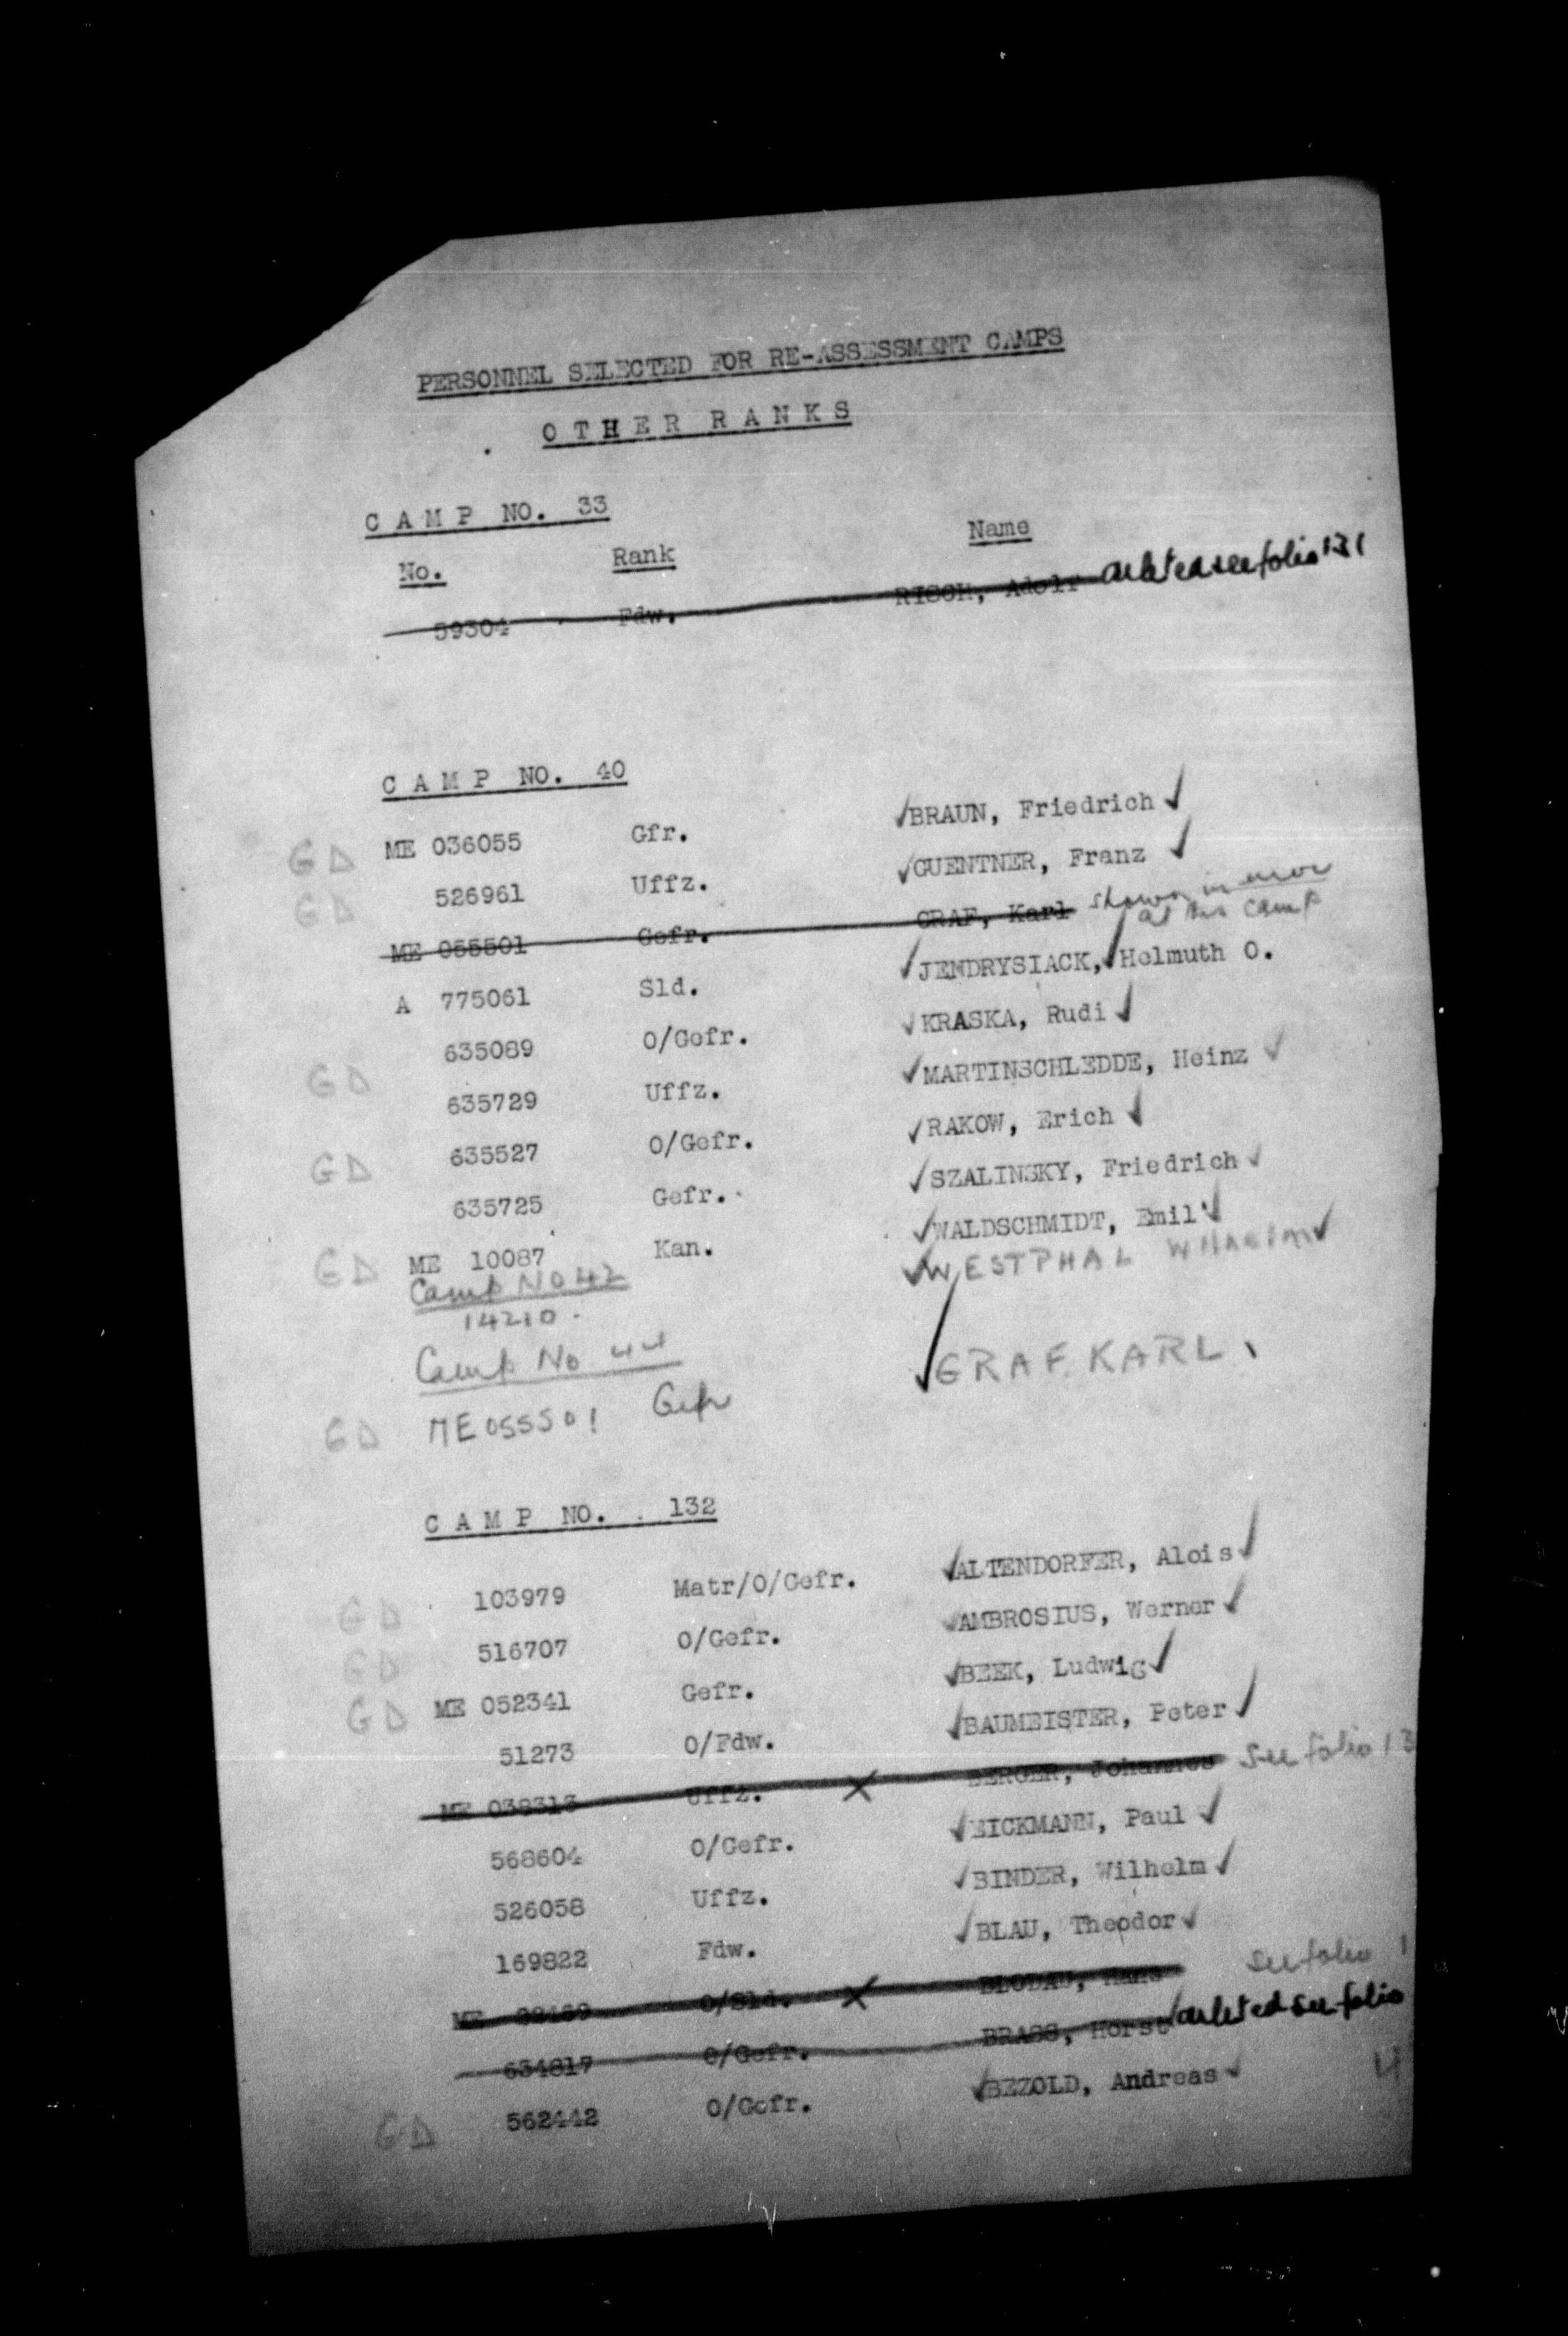 PERSONNEL SELECTED FOR RE-ASSESSMENT CAMPS
O T H E R R A N K S
C A M P NO. 33
No. Rank Name
59304 Fdw. RISCH, Adolf deleted see folio 131
C A M P NO. 40
GD ME 036055 Gfr. BRAUN, Friedrich
GD 526961 Uffz. GUENTNER, Franz
ME 055501 Gefr. GRAF, Karl shown in error
at this camp
A 775061 Sld. JENDRYSIACK, Helmuth O.
635089 O/Gefr. KRASKA, Rudi
GD 635729 Uffz. MARTINSCHLEDDE, Heinz
635527 O/Gefr. RAKOW, Erich
GD 635725 Gefr. SZALINSKY, Friedrich
GD ME 10087 Kan. WALDSCHMIDT, Emil
Camp No 42
14210. WESTPHAL Wilhelm
Camp No 44
GD ME 055501 Gefr GRAF KARL
C A M P NO. 132
GD 103979 Matr/O/Gefr. ALTENDORFER, Alois
GD 516707 O/Gefr. AMBROSIUS, Werner
GD ME 052341 Gefr. BEEK, Ludwig
51273 O/Fdw. BAUMEISTER, Peter
ME 038313 Uffz. X BERGER, Johannes see folio 13
568604 O/Gefr. EICKMANN, Paul
526058 Uffz. BINDER, Wilhelm
169822 Fdw. BLAU, Theodor
ME O/Sld. X BLODAU, Hans see folio 1
634817 O/Gefr. BRASS, Horst deleted see folio
GD 562442 O/Gefr. BEZOLD, Andreas